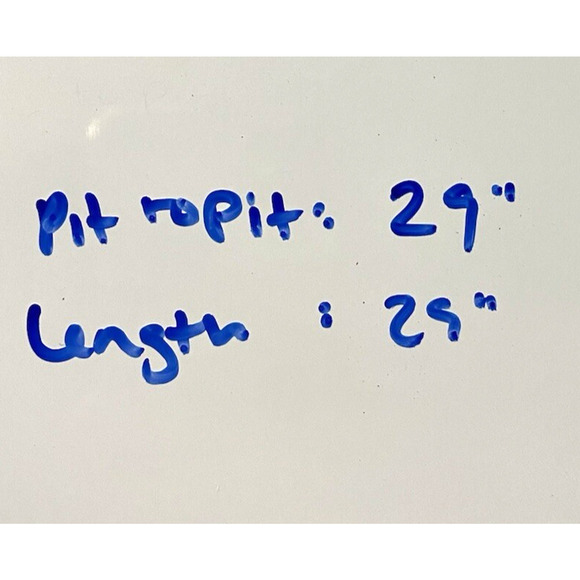 Pit to Pit: 29"
Length : 29"